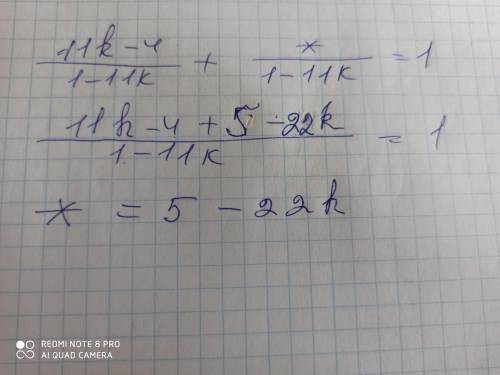 11k-4/1-11k + */1-11k = 1
11k-4+5-22k/1-11k = 1
* = 5 - 22k
REDMI NOTE 8 PRO
AI QUAD CAMERA